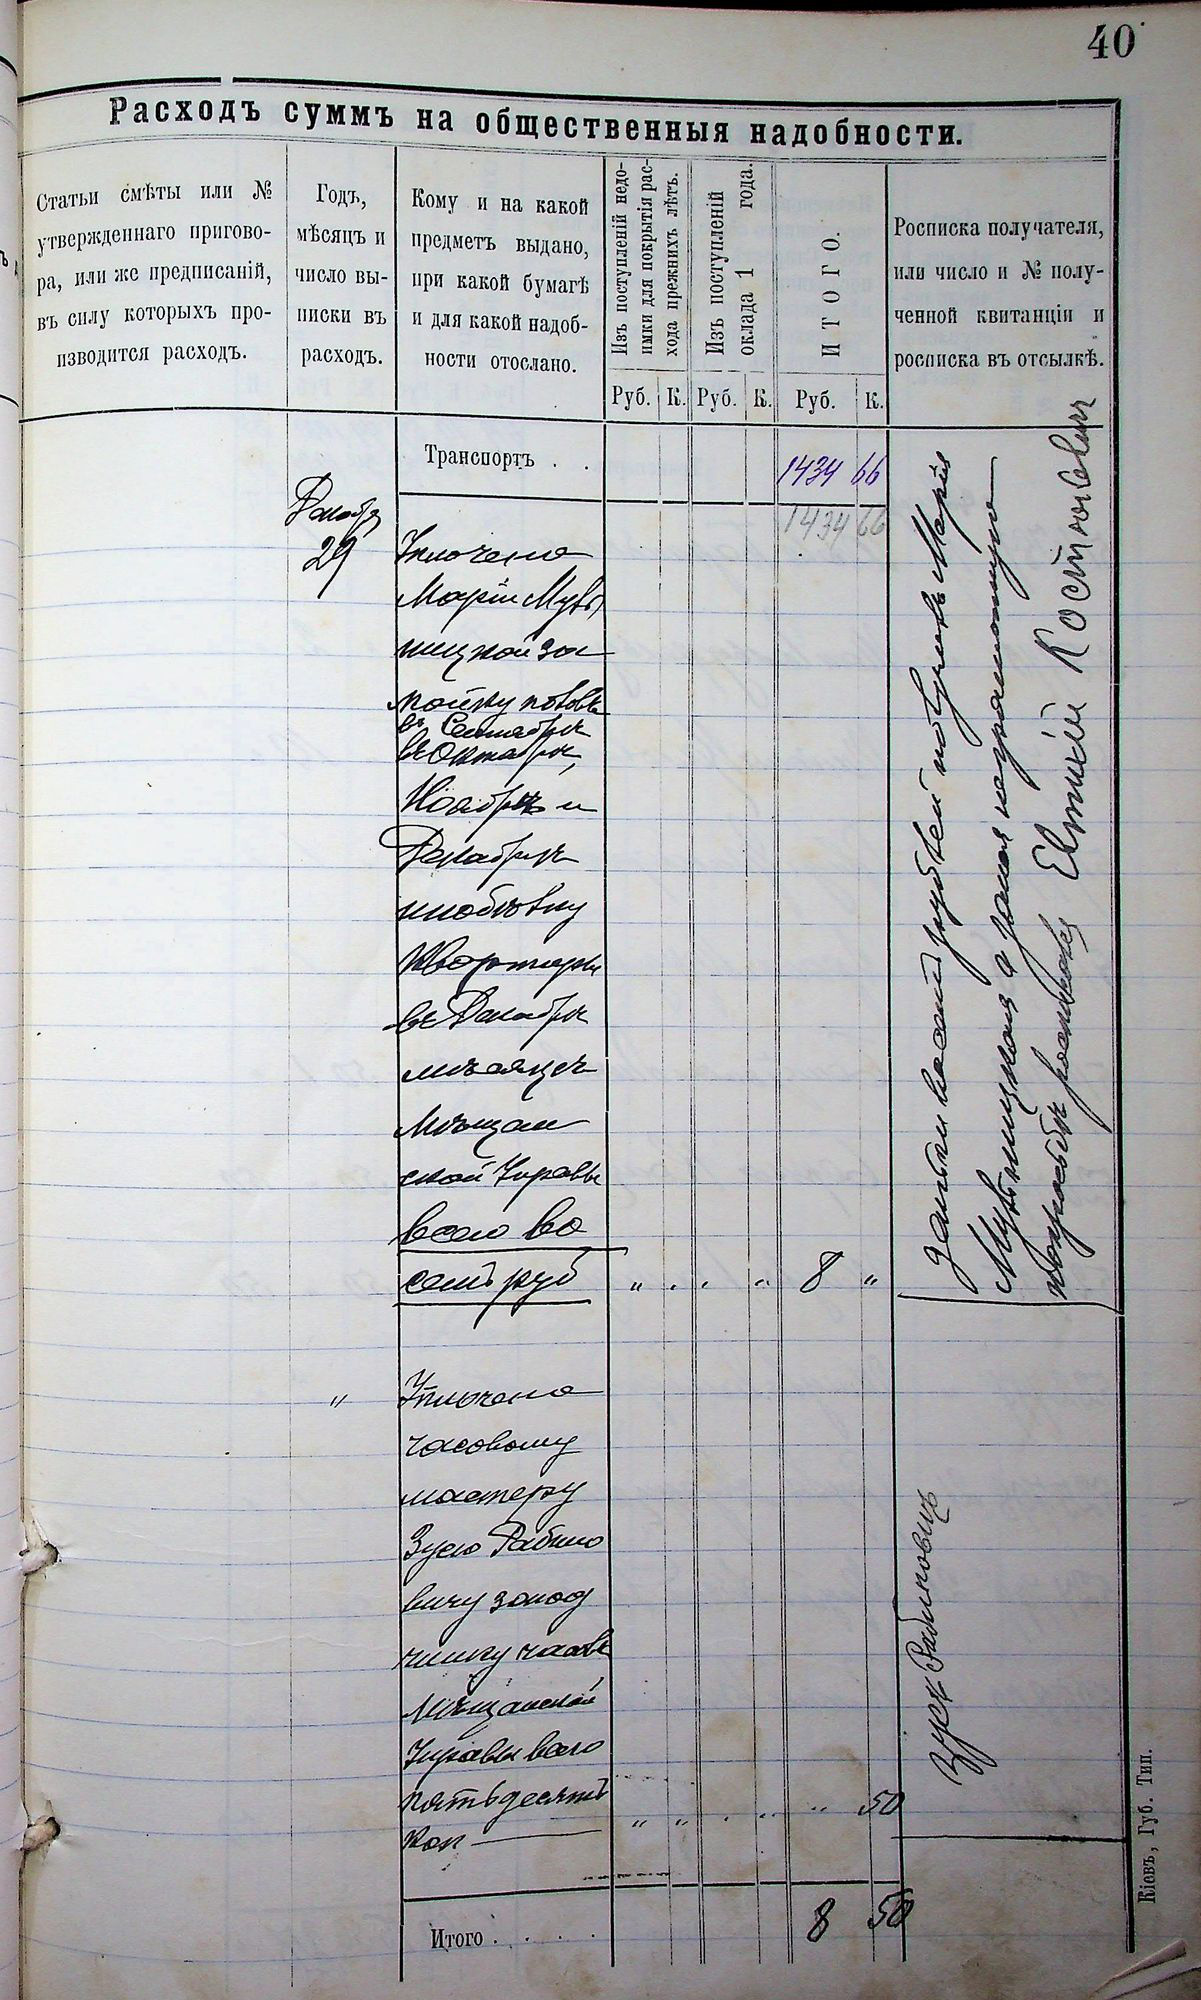 40
Расходъ суммъ на общественныя надобности.
Статьи смѣты или №
утвержденнаго пригово-
ра, или же предписаній,
въ силу которыхъ про-
изводится расходъ.
Годъ,
мѣсяцъ и
число вы-
писки въ
расходъ.
Кому и на какой
предметъ выдано,
при какой бумагѣ
и для какой надоб-
ности отослано.
Изъ поступленій недо-
имки для покрытія рас-
хода прежнихъ лѣтъ.
Изъ поступленій
оклада 1 года.
ИТОГО.
Росписка получателя,
или число и № полу-
ченной квитанціи и
росписка въ отсылкѣ.
Руб. К. Руб. К. Руб. К.
Транспортъ . . 1434 66
1434 66
Декабр
29 Уплочено
Маріи Мувы
ницкой за
мойку половъ
въ Сентябрѣ
въ Октябрѣ,
Ноябрѣ и
Декабрѣ
и побѣлку
Квартиры
въ Декабрѣ
мѣсяцѣ
Мѣщан
ской Управы
всего во
семь руб " " " " 8 "
Деньги восемь рублей получила Марія
Мувыницкая а за нея неграмотную
по просьбѣ росписался Евтихій Костюкевич
" Уплочено
часовому
мастеру
Зусю Рабино
вичу за поч
чинку часовъ
Мѣщанской
Управы всего
пятьдесятъ
коп — " " " " " 50
Зусь Рабиновичъ
Итого . . . . 8 50
Кіевъ, Губ. Тип.